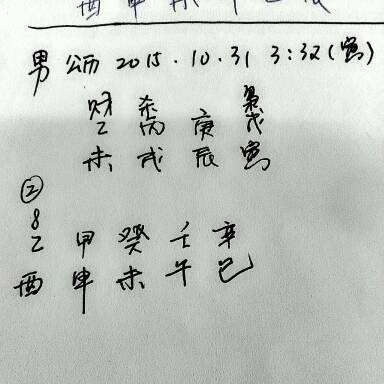 男 公历 2015.10.31 3:32(寅)
财 杀 枭
乙 丙 庚 戊
未 戌 辰 寅
②
8
乙 甲 癸 壬 辛
酉 申 未 午 巳